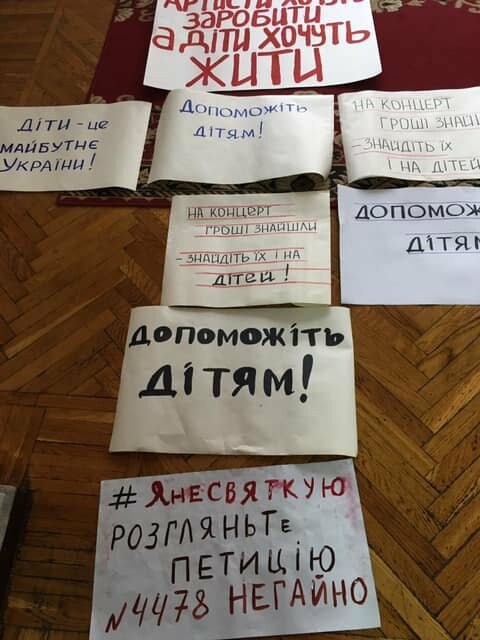 АРТИСТИ ХОЧУТЬ
ЗАРОБИТИ
а ДІТИ ХОЧУТЬ
ЖИТИ
ДІТИ - це
МАЙБУТНЄ
УКРАЇНИ!
ДОПОМОЖІТЬ
ДІТЯМ!
НА КОНЦЕРТ
ГРОШІ ЗНАЙШЛ
- ЗНАЙДІТЬ ЇХ
І НА ДІТЕЙ
НА КОНЦЕРТ
ГРОШІ ЗНАЙШЛИ
- ЗНАЙДІТЬ ЇХ І НА
ДІТЕЙ!
ДОПОМОЖ
ДІТЯМ
ДОПОМОЖІТЬ
ДІТЯМ!
# ЯНЕСВЯТКУЮ
РОЗГЛЯНЬТЕ
ПЕТИЦІЮ
N4478 НЕГАЙНО